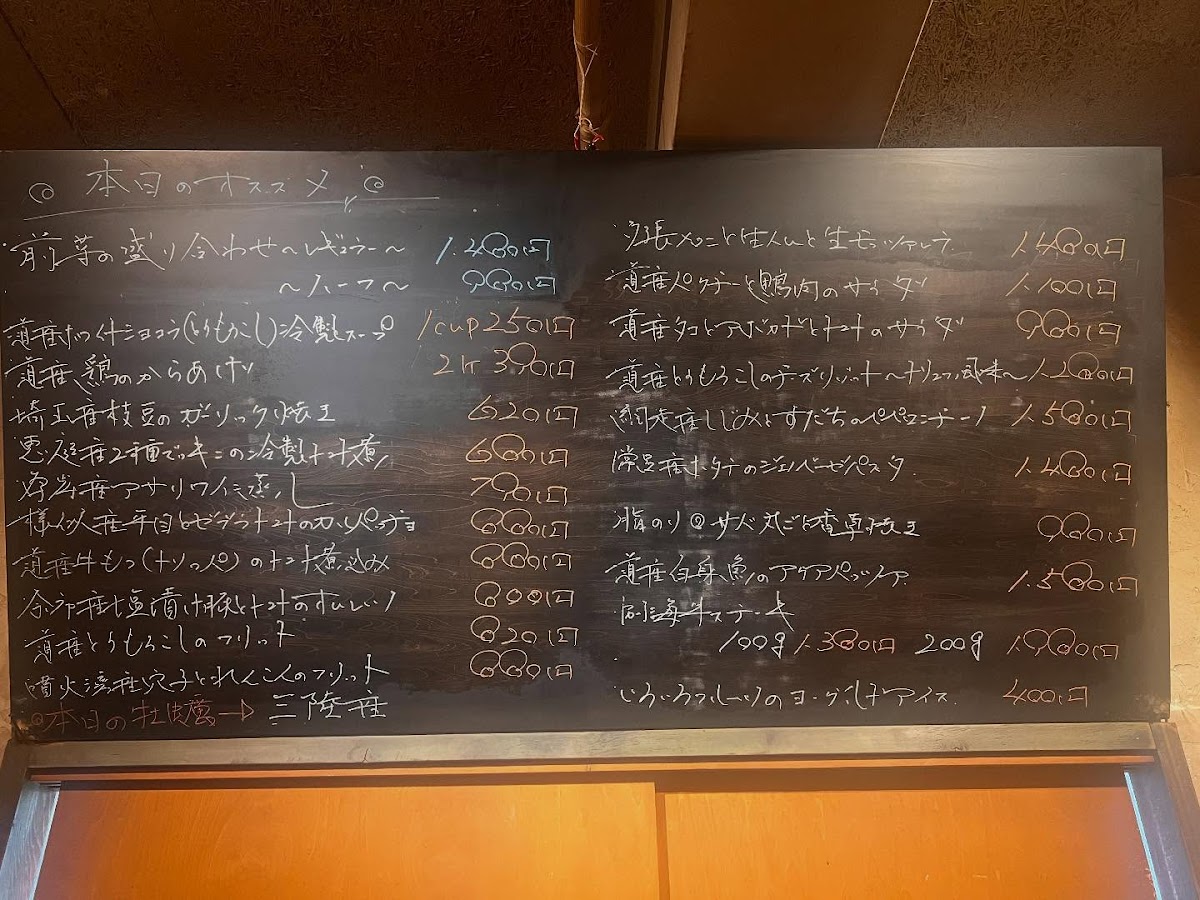 本日のオススメ
前菜の盛り合わせ〜レギュラー〜 1.480円
〜ハーフ〜 980円
道産ホワイトショコラ(とうもろこし)冷製スープ 1cup 250円
道産鶏のからあげ 2ヶ 390円
埼玉産枝豆のガーリック焼き 620円
恵庭産2種ズッキーニの冷製トマト煮 680円
厚岸産アサリワイン蒸し 790円
様似産平目とゼブラトマトのカルパッチョ 880円
道産牛もつ(トリッパ)のトマト煮込み 880円
塩漬け豚とトマトの 800円
道産とうもろこしのフリット 820円
噴火湾産穴子とれんこんのフリット 880円
本日の牡蠣→三陸産
夕張メロンと生ハムと生モッツァレラ 1.480円
道産パクチーと鴨肉のサラダ 1.100円
道産タコとアボカドとトマトのサラダ 980円
道産とうもろこしのチーズリゾット〜トリュフ風味〜 1.280円
網走産しじみとすだちのペペロンチーノ 1.580円
常呂産ホタテのジェノベーゼパスタ 1.480円
脂のり◎サバ丸ごと香草焼き 980円
道産白身魚のアクアパッツァ 1.580円
別海牛ステーキ
100g 1.380円 200g 1.980円
いろいろフルーツのヨーグルトアイス 400円